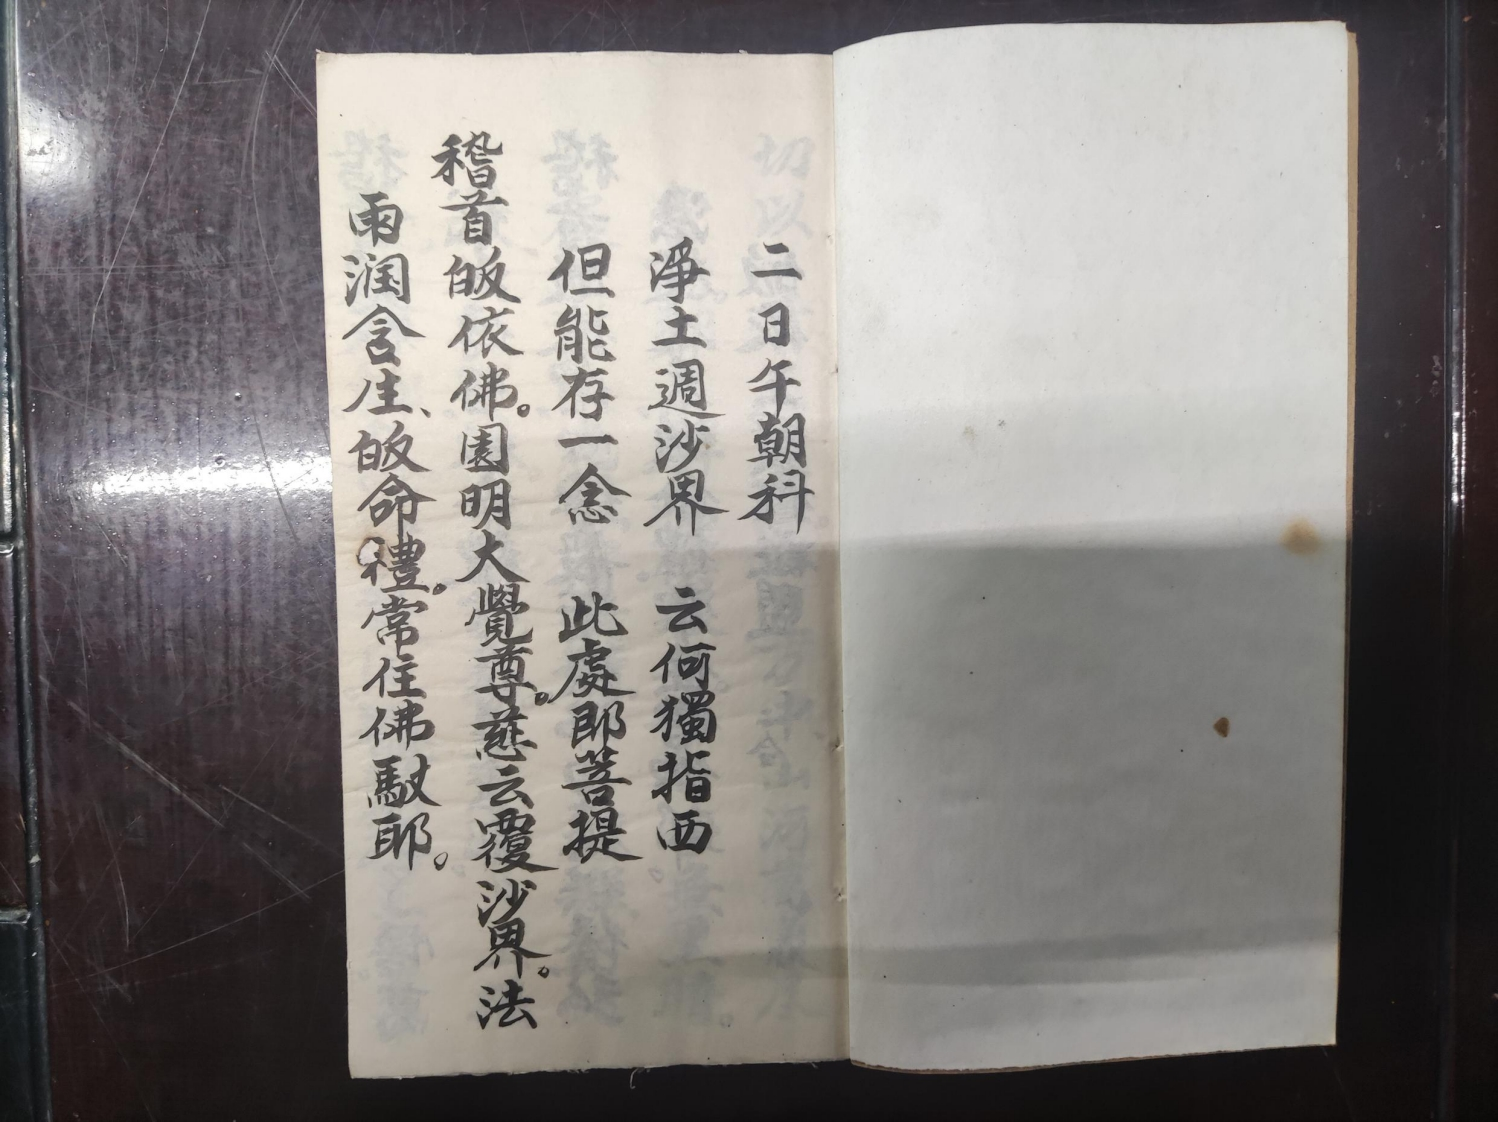 二日午朝科
淨土週沙界　云何獨指西
但能存一念　此處即菩提
稽首皈依佛。圓明大覺尊。慈云覆沙界。法
雨润含生、皈命禮。常住佛馱耶。